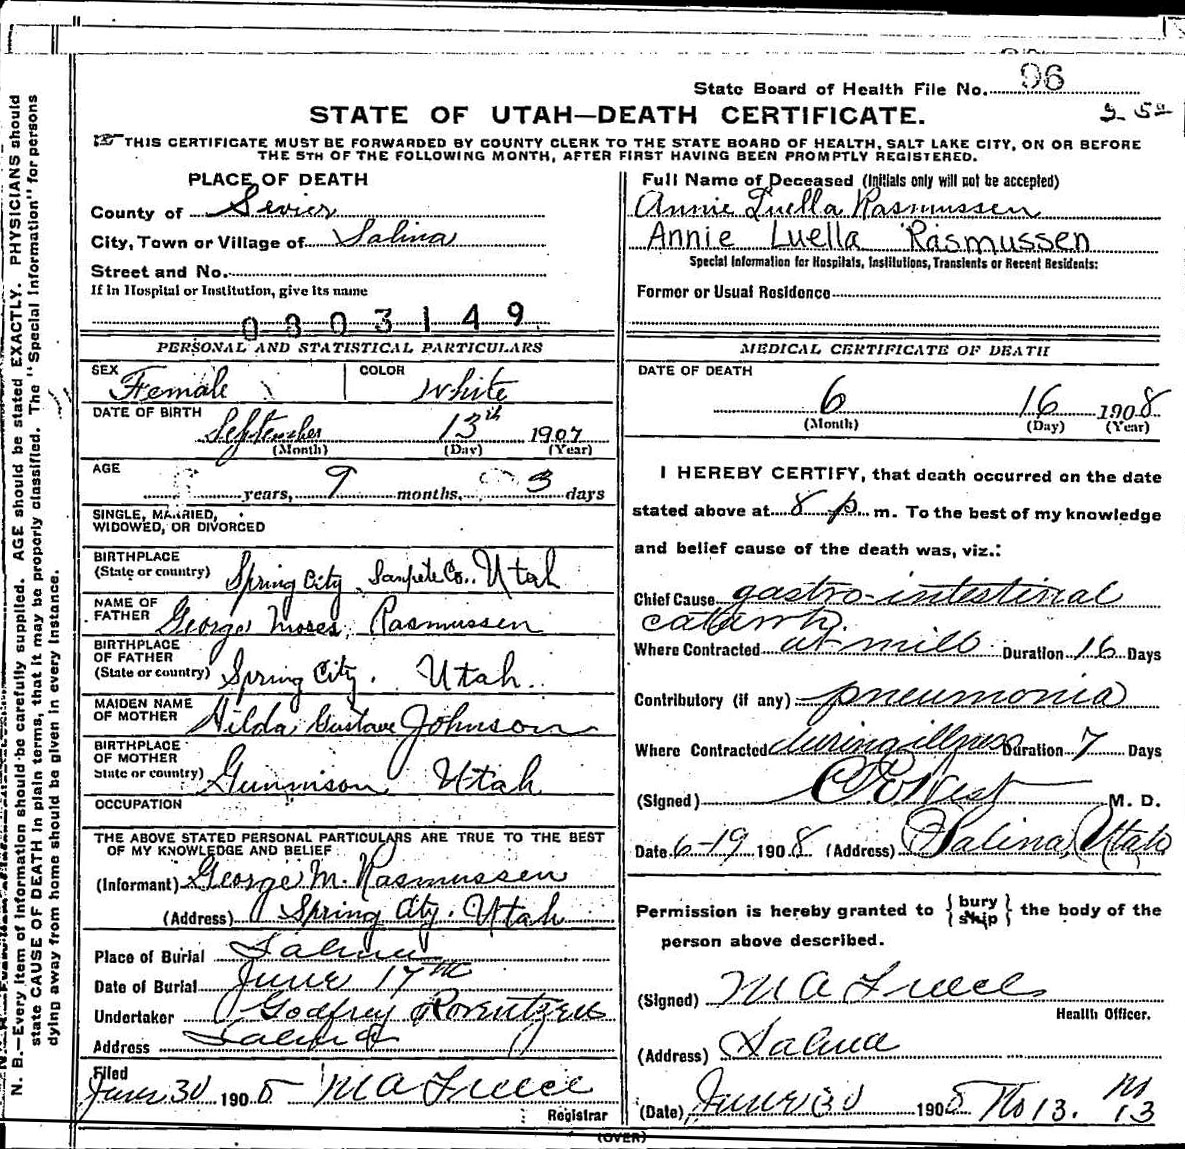 State Board of Health File No. 96
STATE OF UTAH—DEATH CERTIFICATE.
THIS CERTIFICATE MUST BE FORWARDED BY COUNTY CLERK TO THE STATE BOARD OF HEALTH, SALT LAKE CITY, ON OR BEFORE
THE 5TH OF THE FOLLOWING MONTH, AFTER FIRST HAVING BEEN PROMPTLY REGISTERED.
PLACE OF DEATH
County of Sevier
City, Town or Village of Salina
Street and No.
If in Hospital or Institution, give its name
0803149
PERSONAL AND STATISTICAL PARTICULARS
SEX Female COLOR White
DATE OF BIRTH
September 13th 1907
(Month) (Day) (Year)
AGE
years, 9 months, 3 days
SINGLE, MARRIED,
WIDOWED, OR DIVORCED
BIRTHPLACE
(State or country) Spring City, Sanpete Co., Utah
NAME OF
FATHER George Moses Rasmussen
BIRTHPLACE
OF FATHER
(State or country) Spring City. Utah.
MAIDEN NAME
OF MOTHER Hilda Gustave Johnson
BIRTHPLACE
OF MOTHER
State or country) Gunnison Utah
OCCUPATION
THE ABOVE STATED PERSONAL PARTICULARS ARE TRUE TO THE BEST
OF MY KNOWLEDGE AND BELIEF
(Informant) George M. Rasmussen
(Address) Spring City. Utah
Place of Burial Salina
Date of Burial June 17th
Undertaker Godfrey
Address Salina
Filed
June 30 1908 M A
Registrar
Full Name of Deceased (Initials only will not be accepted)
Annie Luella Rasmussen
Annie Luella Rasmussen
Special Information for Hospitals, Institutions, Transients or Recent Residents:
Former or Usual Residence
MEDICAL CERTIFICATE OF DEATH
DATE OF DEATH
6 16 1908
(Month) (Day) (Year)
I HEREBY CERTIFY, that death occurred on the date
stated above at 8 p m. To the best of my knowledge
and belief cause of the death was, viz.:
Chief Cause gastro-intestinal
catarrh.
Where Contracted at mill Duration 16 Days
Contributory (if any) pneumonia
Where Contracted during illness Duration 7 Days
(Signed) West M. D.
Date 6-19 1908 (Address) Salina, Utah
Permission is hereby granted to { bury ship } the body of the
person above described.
(Signed) M A
Health Officer.
(Address) Salina
(Date) June 30 1908 No 13. No 13
(OVER)
N. B.—Every item of Information should be carefully supplied. AGE should be stated EXACTLY. PHYSICIANS should
state CAUSE OF DEATH in plain terms, that it may be properly classified. The "Special Information" for persons
dying away from home should be given in every instance.